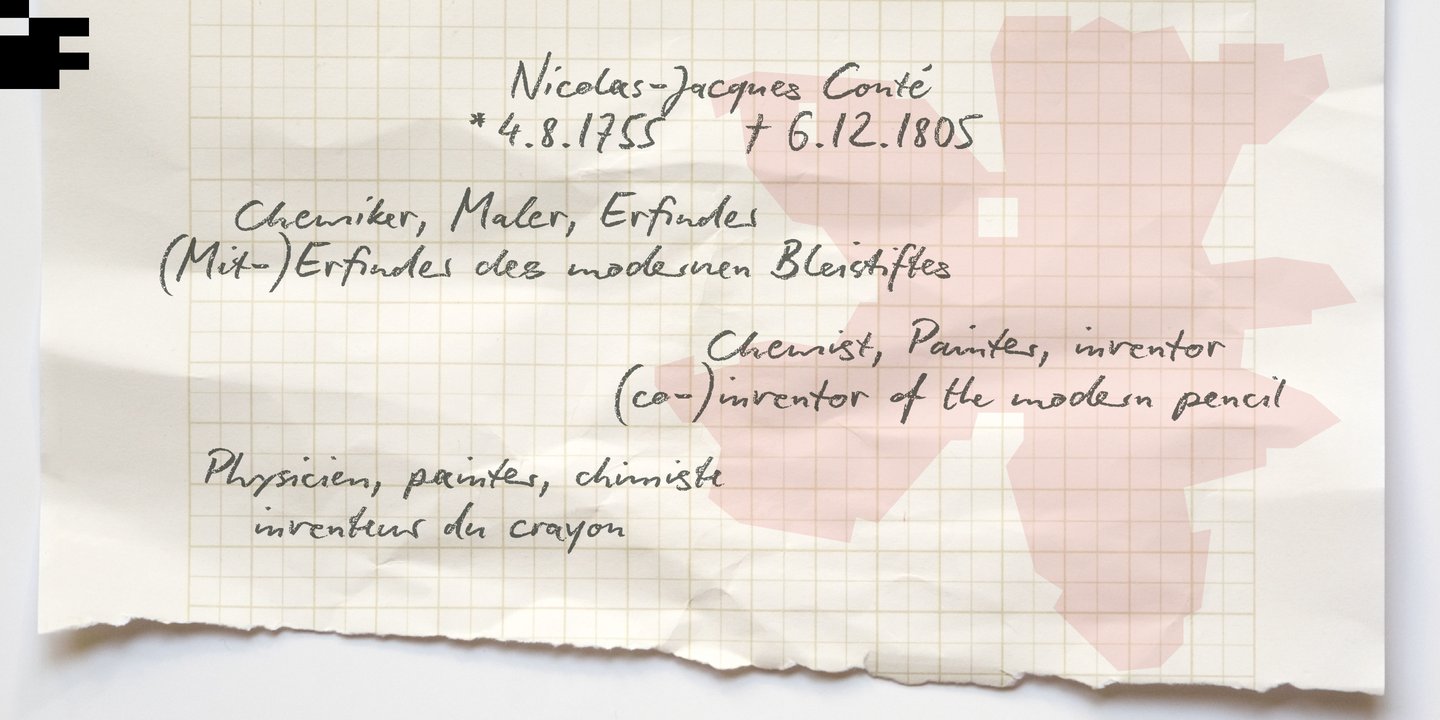 Nicolas-Jacques Conté
* 4.8.1755 † 6.12.1805
Chemiker, Maler, Erfinder
(Mit-)Erfinder des modernen Bleistiftes
Chemist, Painter, inventor
(co-)inventor of the modern pencil
Physicien, painter, chimiste
inventeur du crayon